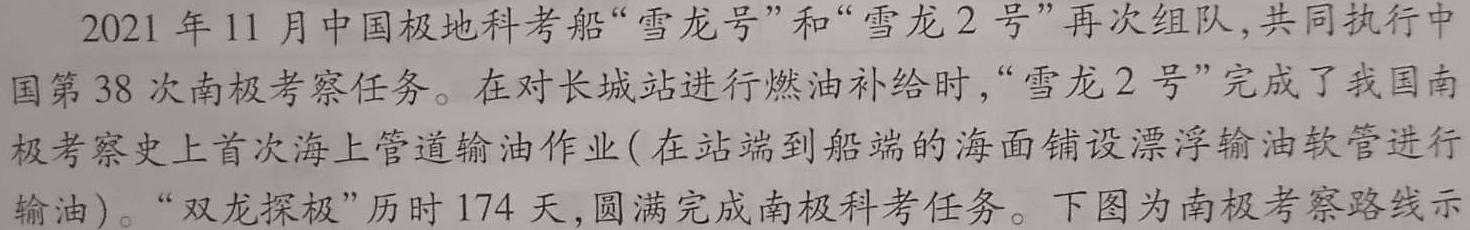 2021 年 11 月中国极地科考船“雪龙号”和“雪龙 2 号”再次组队,共同执行中
国第 38 次南极考察任务。在对长城站进行燃油补给时,“雪龙 2 号”完成了我国南
极考察史上首次海上管道输油作业(在站端到船端的海面铺设漂浮输油软管进行
输油)。“双龙探极”历时 174 天,圆满完成南极科考任务。下图为南极考察路线示